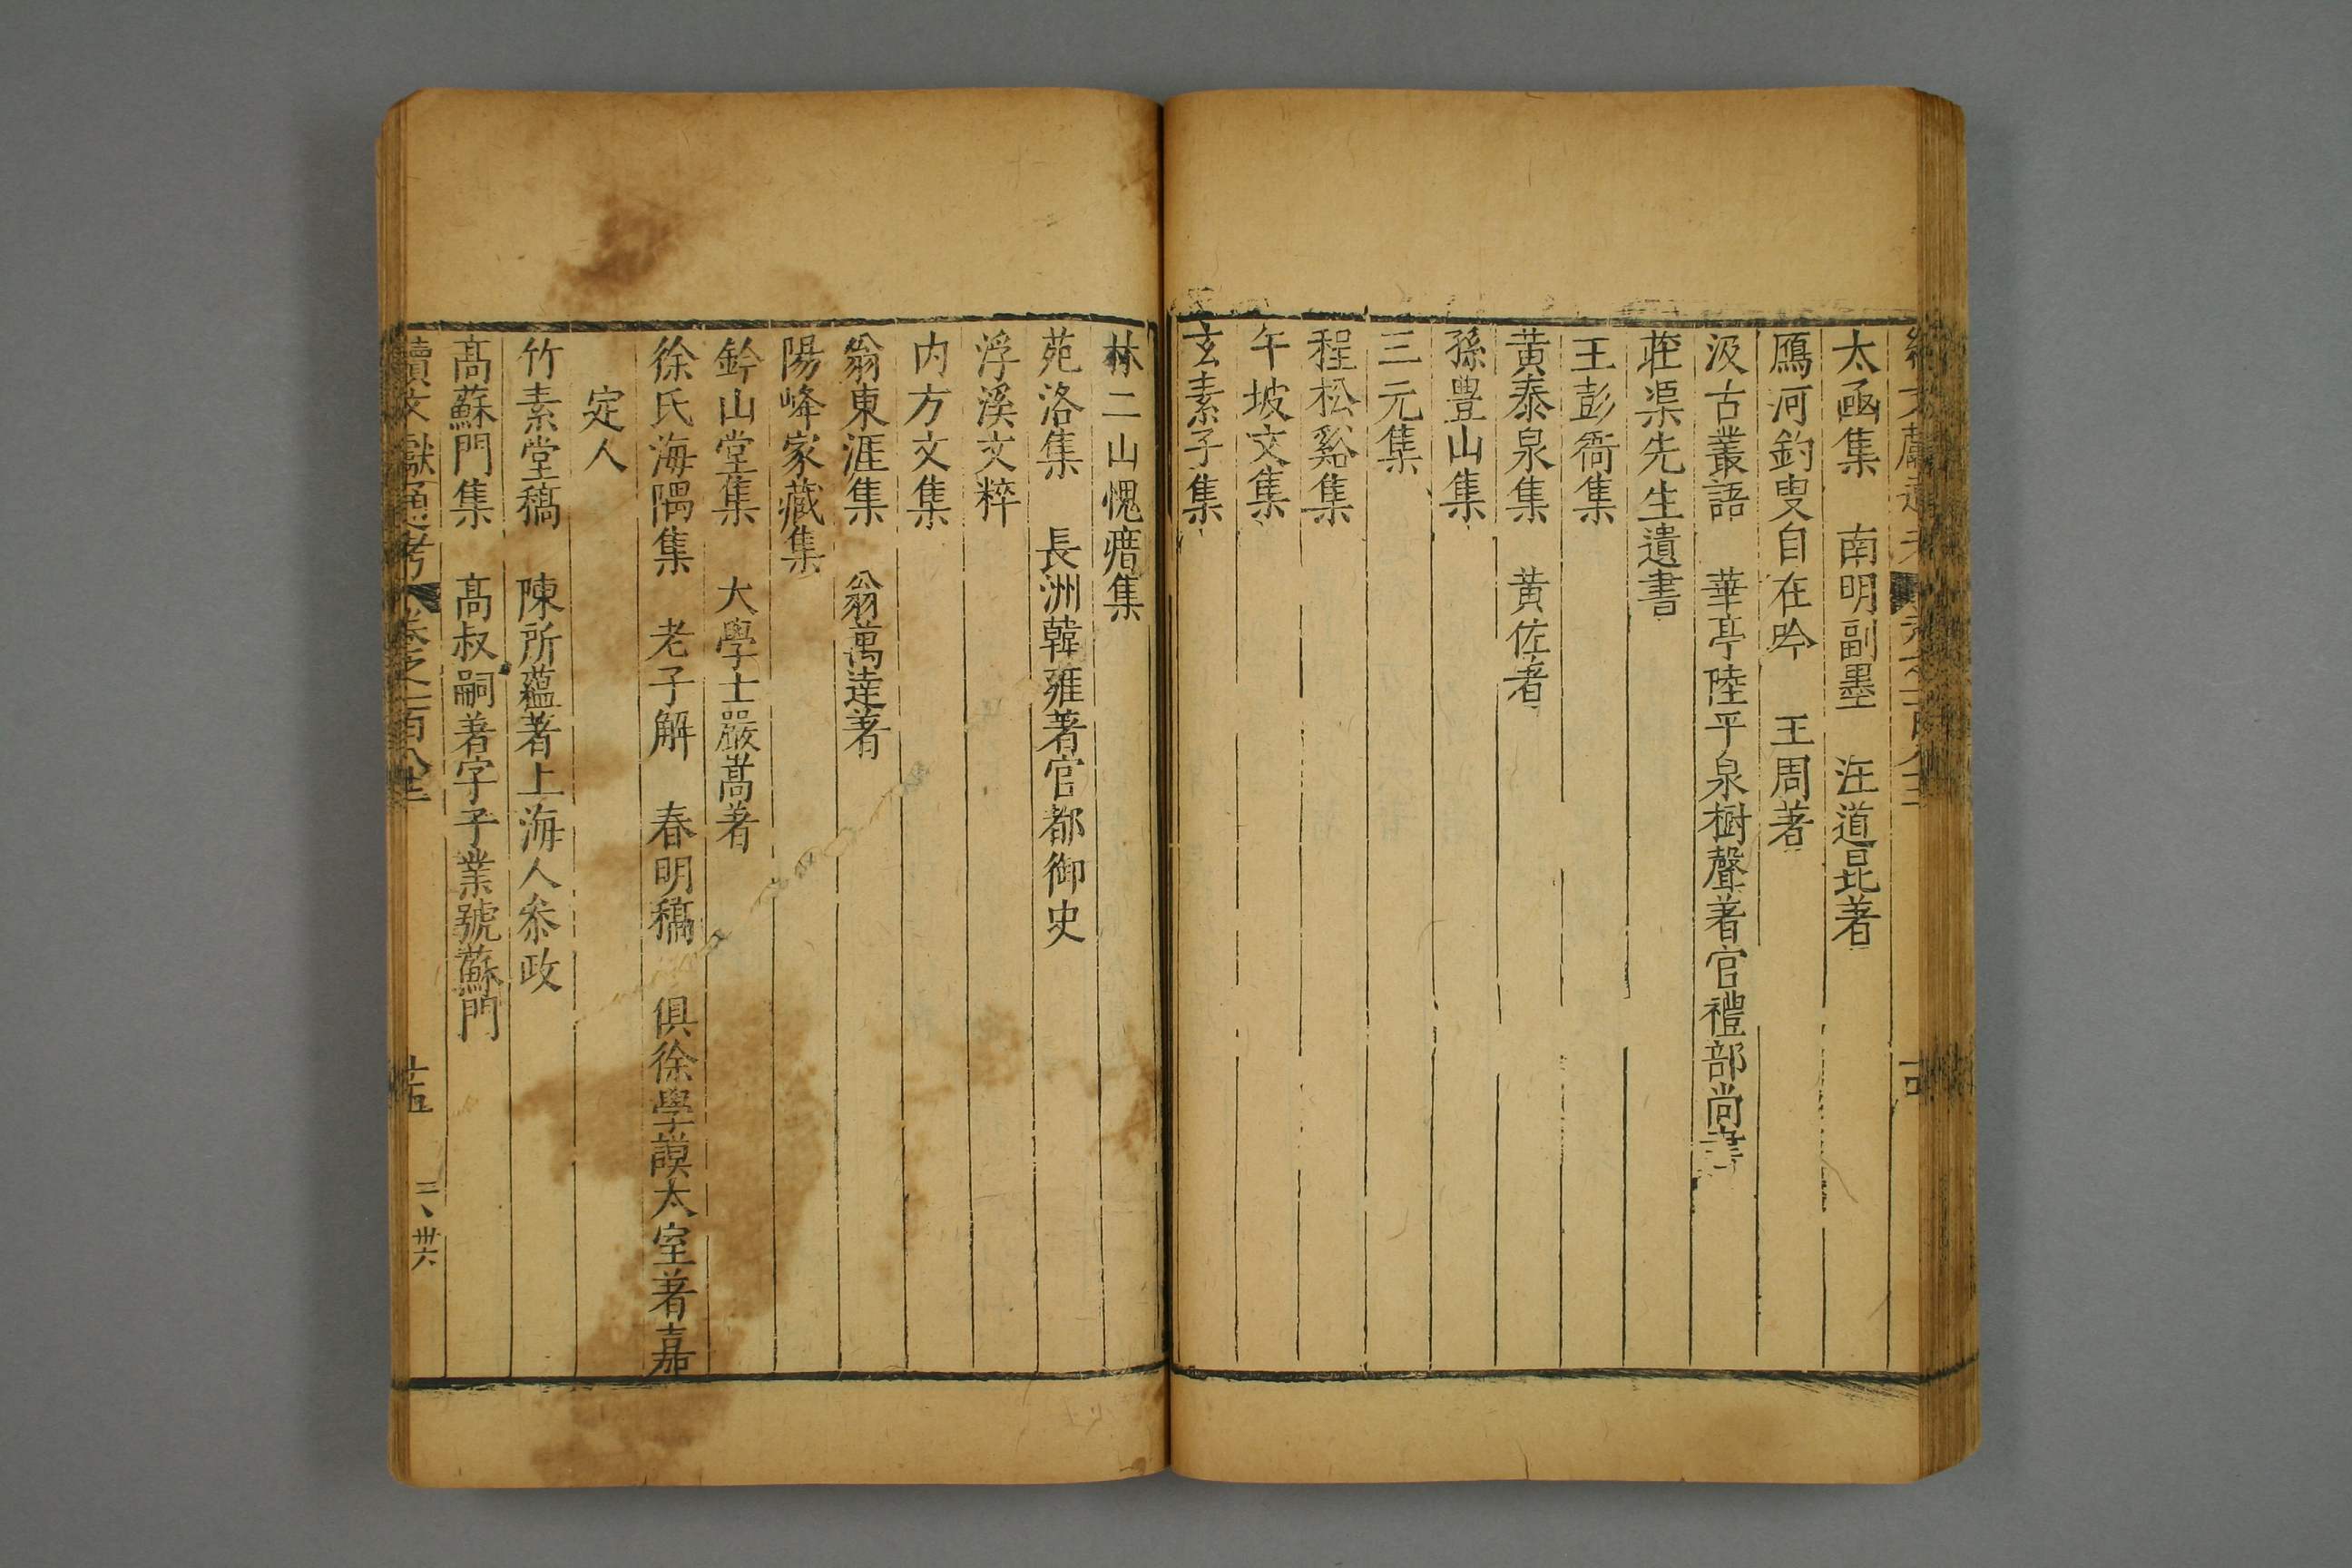 太函集　南明副墨　汪道昆著
鴈河釣叟自在吟　王周著
汲古叢語　華亭陸平泉樹聲著官禮部尚書
莊渠先生遺書
王彭衙集
黃泰泉集　黃佐著
孫豊山集
三元集
程松谿集
午坡文集
玄素子集
林二山愧瘖集
苑洛集　長洲韓雍著官都御史
浮溪文粹
内方文集
翁東涯集　翁萬達著
陽峰家藏集
鈐山堂集　大學士嚴嵩著
徐氏海隅集　老子解　春明稿　俱徐學謨太室著嘉
定人
竹素堂稿　陳所蘊著上海人叅政
髙蘇門集　髙叔嗣著字子業號蘇門
續文獻通考　卷之一百八十三　十五　三、卅六